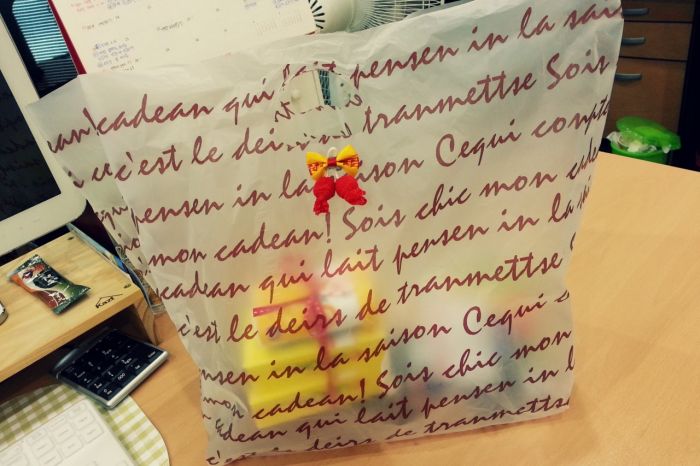 cadean qui lait pensen in la sais
ean! c'est le deirs de tranmettse Sois
pensen in la saison Cequi compt
mon cadean! Sois chic mon cade
cadean qui lait pensen in la s
c'est le deirs de tranmettse
nsen in la saison Cequi c
mon cadean! Sois chic mon
dean qui lait pensen in l
c'est le deirs de tranmettse